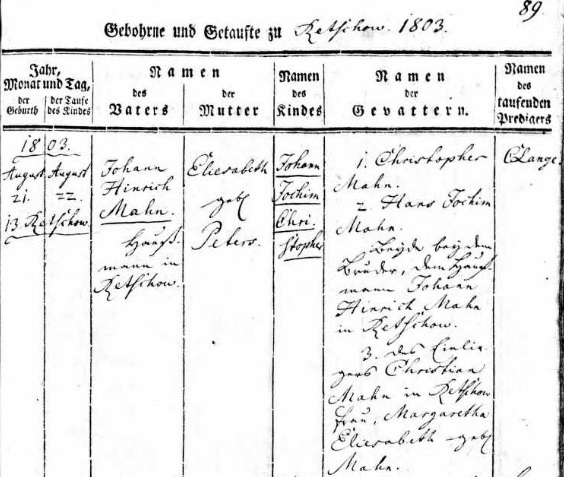 89.
Gebohrne und Getaufte zu Retschow. 1803.
Jahr,
Monat und Tag,
der Geburth
der Taufe des Kindes
Namen
des
Vaters
der
Mutter
Namen
des
Kindes
Namen
der
Gevattern.
Namen
des
taufenden
Predigers
1803.
August
21.
August
22.
13. Retschow.
Johann
Hinrich
Mahn.
Hauß-
mann in
Retschow.
Eliesabeth
geb
Peters.
Johann
Jochim
Chri-
stopher
1. Christopher
Mahn.
2. Hans Jochim
Mahn.
Beyde bey dem
Bruder, dem Hauß-
mann Johann
Hinrich Mahn
in Retschow.
3. des Einlie-
gers Christian
Mahn in Retschow
Frau, Margaretha
Eliesabeth geb
Mahn.
CLange.